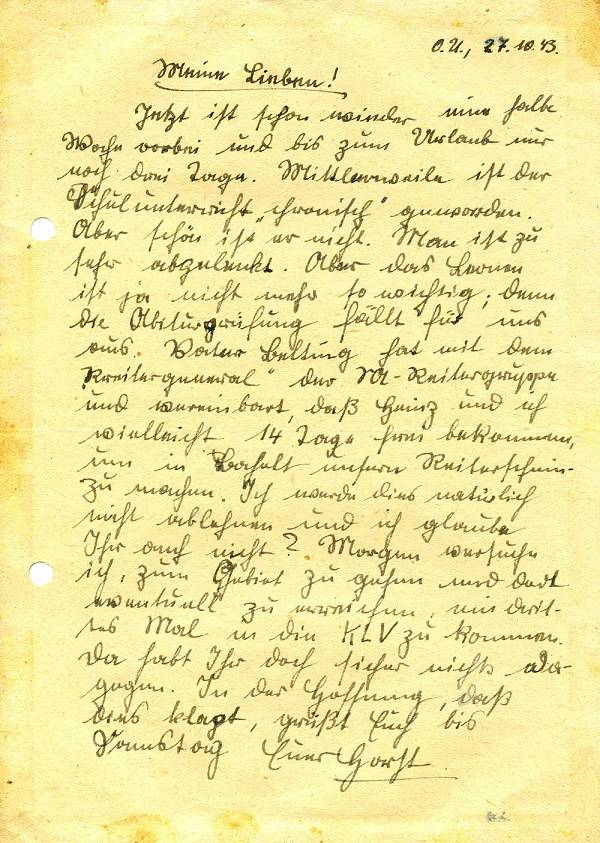 O.U., 27.10.43.
Meine Lieben!
Jetzt ist schon wieder eine halbe
Woche vorbei und bis zum Urlaub nur
noch drei Tage. Mittlerweile ist der
Schulunterricht „chronisch" geworden.
Aber schön ist er nicht. Man ist zu
sehr abgelenkt. Aber das Lernen
ist ja nicht mehr so wichtig, denn
die Abiturprüfung fällt für uns
aus. Vater Belting hat mit dem
„Reitergeneral" der SA-Reitergruppe
und vereinbart, daß Heinz und ich
vielleicht 14 Tage frei bekommen,
um in Bocholt unsern Reiterschein
zu machen. Ich werde dies natürlich
nicht ablehnen und ich glaube
Ihr auch nicht? Morgen versuche
ich, zum Gebiet zu gehen und dort
eventuell zu erreichen, ein drit-
tes Mal in die KLV zu kommen.
Da habt Ihr doch sicher nichts da-
gegen. In der Hoffnung, daß
dies klapt, grüßt Euch bis
Samstag Euer Horst